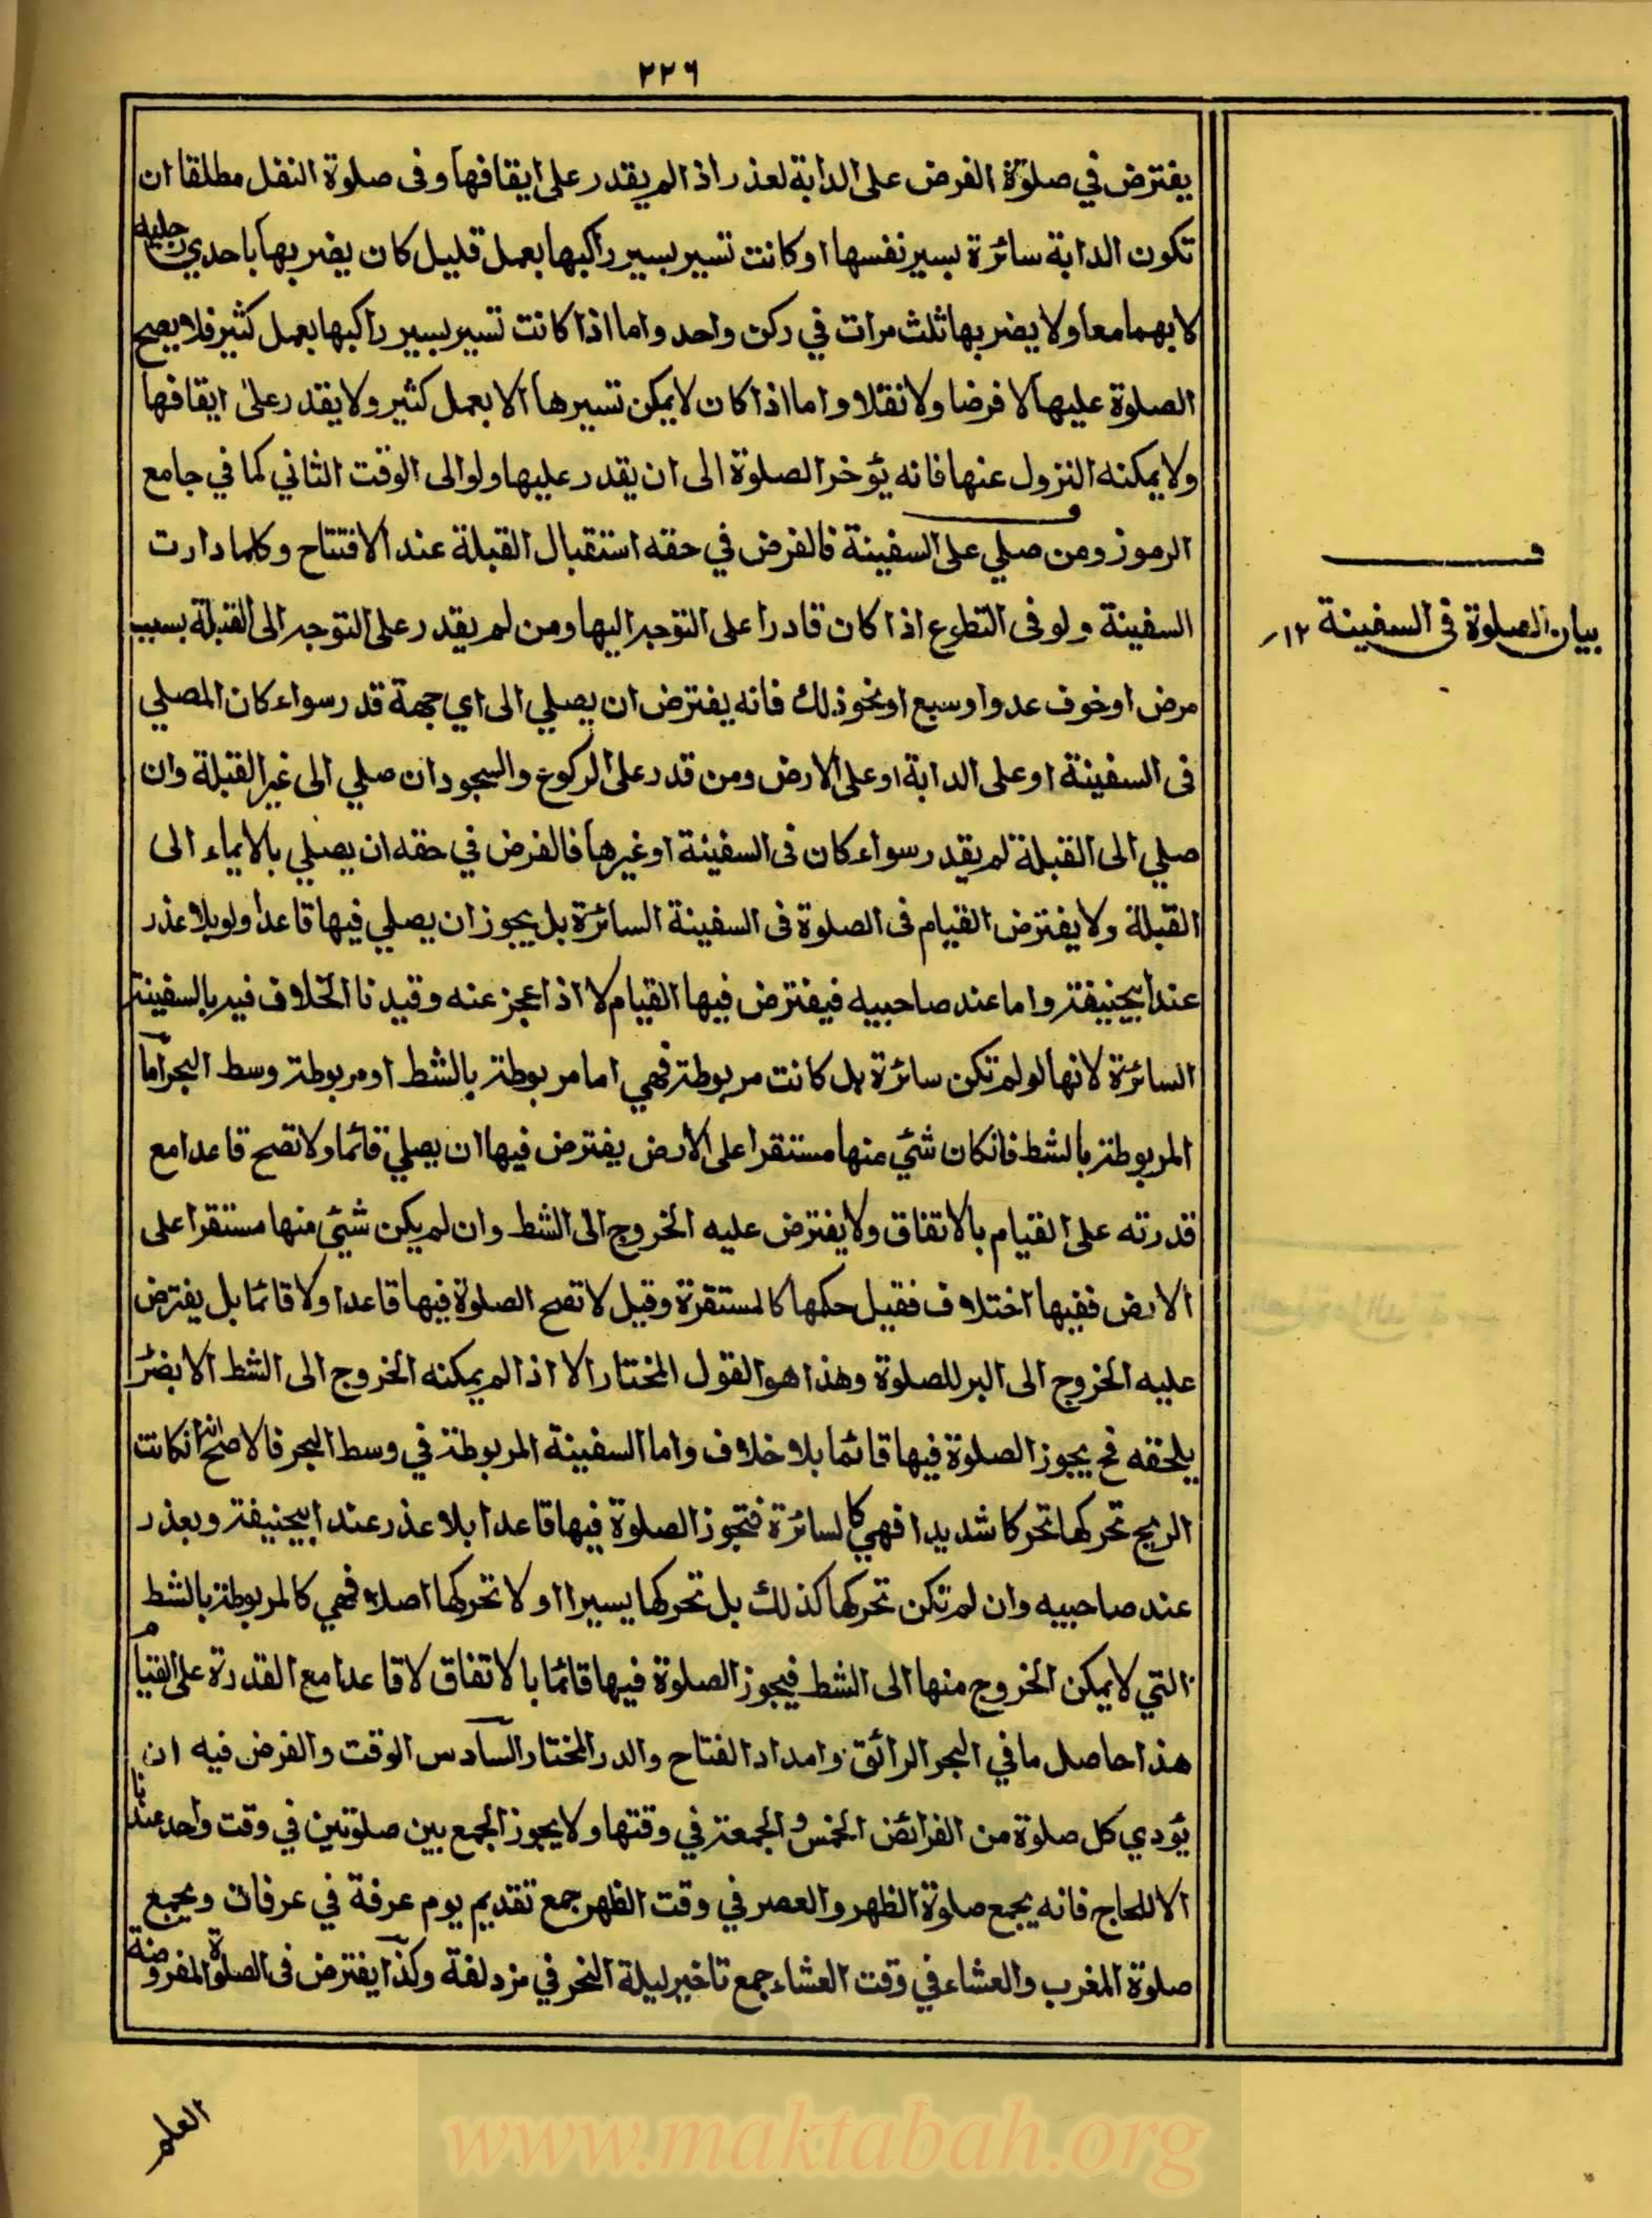 ٢٢٦
يفترض في صلوة الفرض على الدابة لعذر اذا لم يقدر على ايقافها وفى صلوة النفل مطلقا ان
تكون الدابة سائرة بسير نفسها او كانت تسير بسير راكبها بعمل قليل كان يضربها باحدي رجليه
لا بهما معا ولا يضربها ثلث مرات في ركن واحد واما اذا كانت تسير بسير راكبها بعمل كثير فلا يصح
الصلوة عليها لا فرضا ولا نفلا واما اذا كان لا يمكن تسيرها الا بعمل كثير ولا يقدر على ايقافها
ولا يمكنه النزول عنها فانه يؤخر الصلوة الى ان يقدر عليها ولو الى الوقت الثاني كما في جامع
الرموز ومن صلي على السفينة فالفرض في حقه استقبال القبلة عند الافتتاح وكلما دارت
بيان الصلوة فى السفينة ١٢
السفينة ولو فى التطوع اذا كان قادرا على التوجه اليها ومن لم يقدر على التوجه الى القبلة بسبب
مرض او خوف عدو او سبع او نحو ذلك فانه يفترض ان يصلي الى اي جهة قدر سواء كان المصلي
فى السفينة او على الدابة او على الارض ومن قدر على الركوع والسجود ان صلي الى غير القبلة وان
صلي الى القبلة لم يقدر سواء كان فى السفينة او غيرها فالفرض في حقه ان يصلي بالايماء الى
القبلة ولا يفترض القيام فى الصلوة فى السفينة السائرة بل يجوز ان يصلي فيها قاعدا ولو بلا عذر
عند ابيحنيفة واما عند صاحبيه فيفترض فيها القيام لا اذا عجز عنه وقيدنا الخلاف فيه بالسفينة
السائرة لانها لو لم تكن سائرة بل كانت مربوطة فهي اما مربوطة بالشط او مربوطة وسط البحر اما
المربوطة بالشط فانكان شئي منها مستقرا على الارض يفترض فيها ان يصلي قائما ولا تصح قاعدا مع
قدرته على القيام بالاتفاق ولا يفترض عليه الخروج الى الشط وان لم يكن شئي منها مستقرا على
الارض ففيها اختلاف فقيل حكمها كالمستقرة وقيل لا تصح الصلوة فيها قاعدا ولا قائما بل يفترض
عليه الخروج الى البر للصلوة وهذا هو القول المختار الا اذا لم يمكنه الخروج الى الشط الا بضرر
يلحقه فح يجوز الصلوة فيها قائما بلا خلاف واما السفينة المربوطة في وسط البحر فالاصح انه انكانت
الريح تحركها تحركا شديدا فهي كالسائرة فتجوز الصلوة فيها قاعدا بلا عذر عند ابيحنيفة وبعذر
عند صاحبيه وان لم تكن تحركها كذلك بل تحركها يسيرا او لا تحركها اصلا فهي كالمربوطة بالشط
التي لا يمكن الخروج منها الى الشط فيجوز الصلوة فيها قائما بالاتفاق لا قاعدا مع القدرة على القيام
هذا حاصل ما في البحر الرائق وامداد الفتاح والدر المختار السادس الوقت والفرض فيه ان
يؤدي كل صلوة من الفرائض الخمس والجمعة في وقتها ولا يجوز الجمع بين صلوتين في وقت واحد عندنا
الا للحاج فانه يجمع صلوة الظهر والعصر في وقت الظهر جمع تقديم يوم عرفة في عرفات ويجمع
صلوة المغرب والعشاء في وقت العشاء جمع تاخير ليلة النحر في مزدلفة وكذا يفترض فى الصلوة المفروضة
العلم
www.maktabah.org